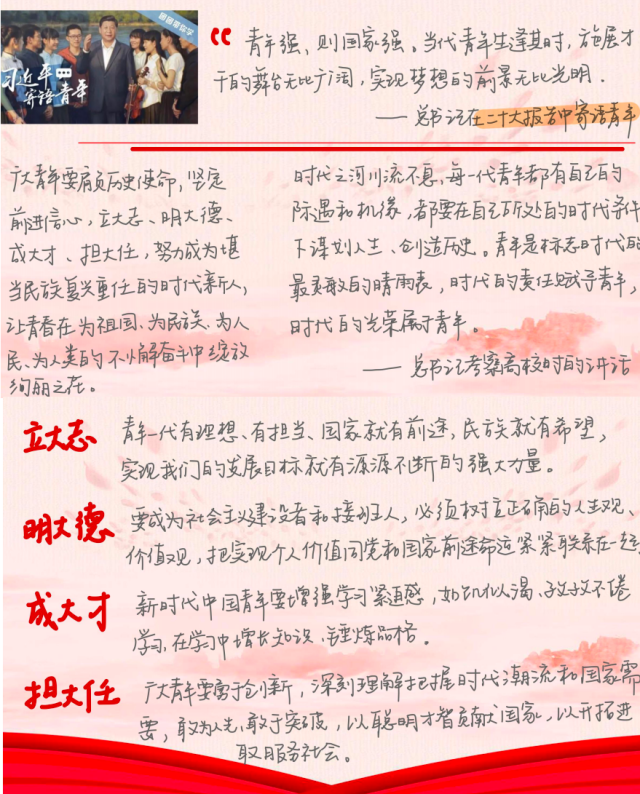 习近平
寄语青年
青年强、则国家强。当代青年生逢其时，施展才
干的舞台无比广阔，实现梦想的前景无比光明．
——总书记在二十大报告中寄语青年
广大青年要肩负历史使命，坚定
前进信心，立大志、明大德、
成大才、担大任，努力成为堪
当民族复兴重任的时代新人，
让青春在为祖国、为民族、为人
民、为人类的不懈奋斗中绽放
绚丽之花。
时代之河川流不息，每一代青年都有自己的
际遇和机缘，都要在自己所处的时代条件
下谋划人生、创造历史。青年是标志时代的
最灵敏的晴雨表，时代的责任赋予青年，
时代的光荣属于青年。
——总书记考察高校时的讲话
立大志
青年一代有理想、有担当、国家就有前途，民族就有希望，
实现我们的发展目标就有源源不断的强大力量。
明大德
要成为社会主义建设者和接班人，必须树立正确的人生观、
价值观，把实现个人价值同党和国家前途命运紧紧联系在一起
成大才
新时代中国青年要增强学习紧迫感，如饥似渴、孜孜不倦
学习，在学习中增长知识、锤炼品格。
担大任
广大青年要勇于创新，深刻理解把握时代潮流和国家需
要，敢为人先、敢于突破，以聪明才智贡献国家，以开拓进
取服务社会。